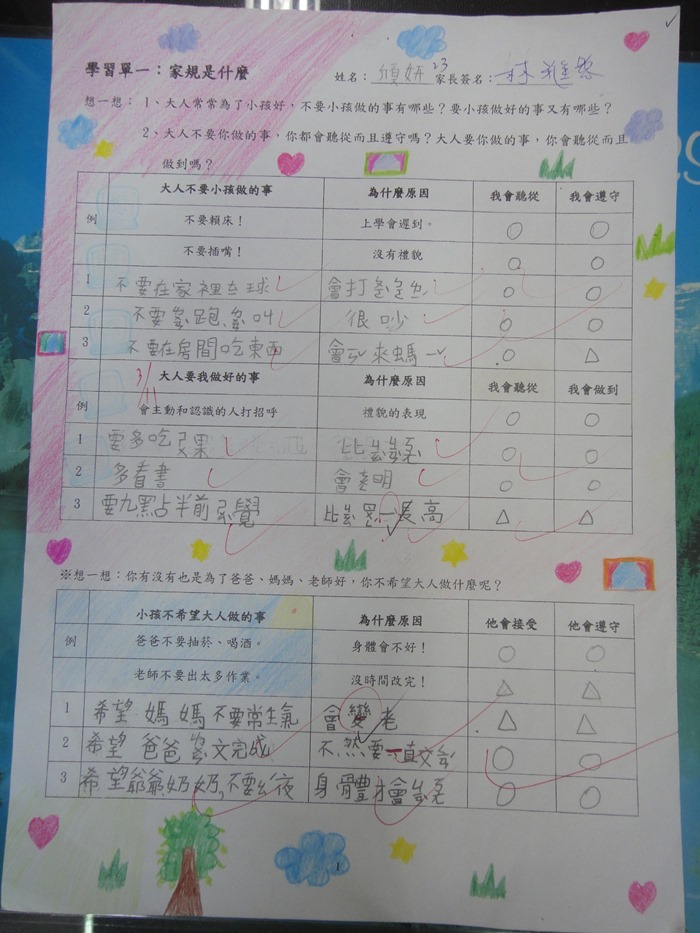 學習單一：家規是什麼
姓名： 23 家長簽名：
想一想： 1、大人常常為了小孩好，不要小孩做的事有哪些？要小孩做好的事又有哪些？
2、大人不要你做的事，你都會聽從而且遵守嗎？大人要你做的事，你會聽從而且
做到嗎？
大人不要小孩做的事 為什麼原因 我會聽從 我會遵守
例 不要賴床！ 上學會遲到。 ○ ○
不要插嘴！ 沒有禮貌 ○ ○
1 不要在家裡 球 會打 ○ ○
2 不要 跑 叫 很吵 ○ ○
3 不要在房間吃東西 會 來螞一 ○ △
3/11
大人要我做好的事 為什麼原因 我會聽從 我會做到
例 會主動和認識的人打招呼 禮貌的表現 ○ ○
1 要多吃 果 比 ○ ○
2 多看書 會 明 ○ ○
3 要九點占半前 覺 比 長高 △ △
※想一想：你有沒有也是為了爸爸、媽媽、老師好，你不希望大人做什麼呢？
小孩不希望大人做的事 為什麼原因 他會接受 他會遵守
例 爸爸不要抽菸、喝酒。 身體會不好！ ○ ○
老師不要出太多作業。 沒時間改完！ △ △
1 希望媽媽不要常生氣 會變老 △ △
2 希望爸爸 文完成 不然要一直文 ○ ○
3 希望爺爺奶奶,不要 夜 身體才會 ○ ○
1